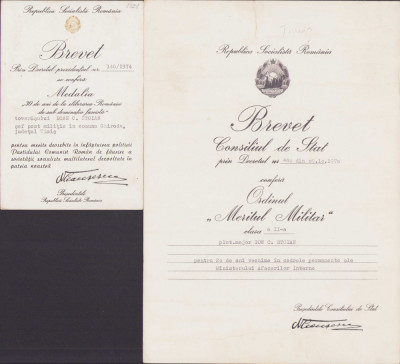 Republica Socialistă România
Brevet
Prin Decretul prezidențial nr. 160/1974
se conferă
Medalia
"30 de ani de la eliberarea României
de sub dominația fascistă"
tovarășului ION C.
șef post miliție în comuna
județul
pentru merite deosebite în înfăptuirea politicii
Partidului Comunist Român de făurire a
societății socialiste multilateral dezvoltate în
patria noastră
Președintele
Republicii Socialiste România
Republica Socialistă România
Brevet
Consiliul de Stat
prin Decretul nr.
conferă
Ordinul
„Meritul Militar”
clasa a II-a
plot.major ION C.
pentru 20 de ani vechime în cadrele permanente ale
Ministerului Afacerilor Interne
Președintele Consiliului de Stat